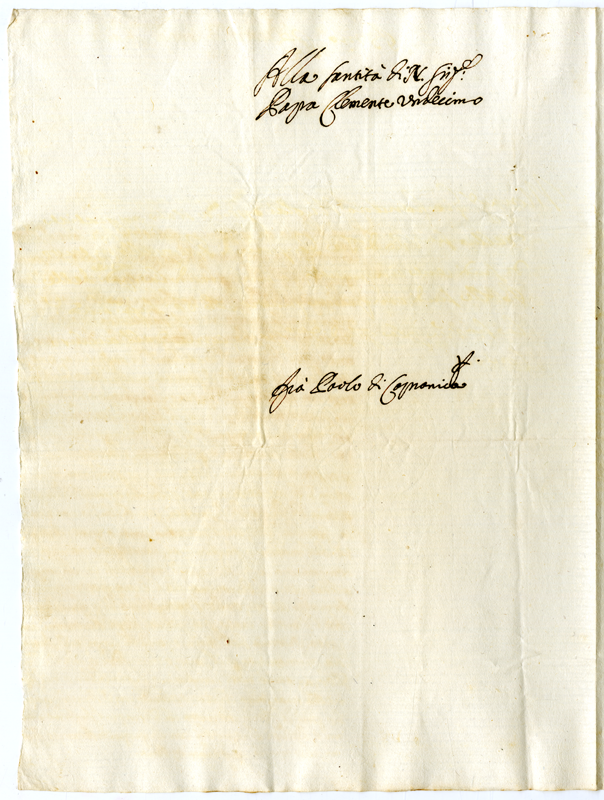 Alla Santità di N. Sig.re
Papa Clemente Undecimo
Già Paolo di Capranica